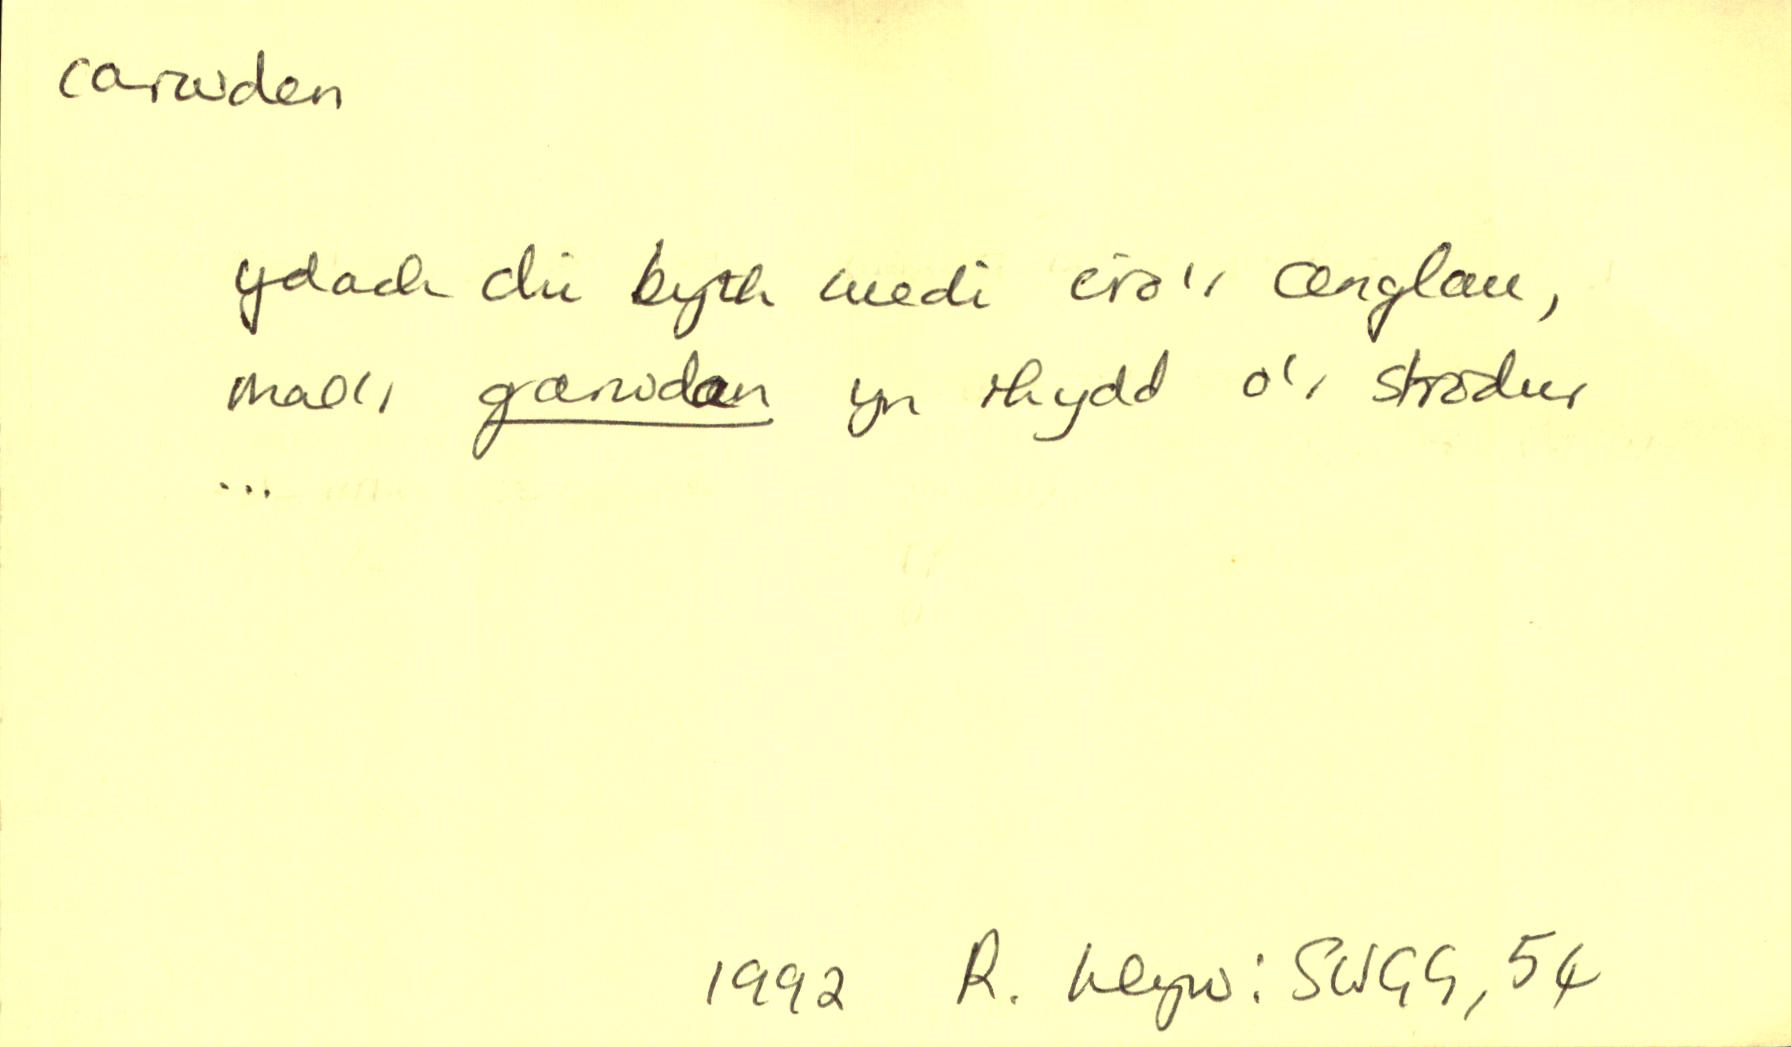 carwden
ydach chi byth wedi eiro'r cenglau,
mae'r garwdan yn rhydd o'r strodur
...
1992 R. Llwyn: SWGG, 54